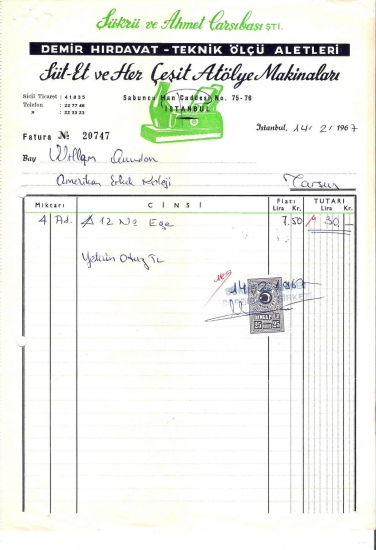 Şükrü ve Ahmet Çarşıbaşı ŞTİ.
DEMİR HIRDAVAT - TEKNİK ÖLÇÜ ALETLERİ
Süt-Et ve Her Çeşit Atölye Makinaları
Sicil Ticaret : 41835
Telefon : 22 77 46
» : 22 23 23
Sabuncu Han Caddesi No. 75-76
İSTANBUL
Fatura № 20747
İstanbul, 14/2/1967
Bay William
Amerikan Erkek Koleji
Tarsus
Miktarı
CİNSİ
Fiatı
Lira Kr.
TUTARI
Lira Kr.
4 Ad. 12 No Eğe 7.50 30,-
Yekün Otuz TL
14.2.1967
25 25